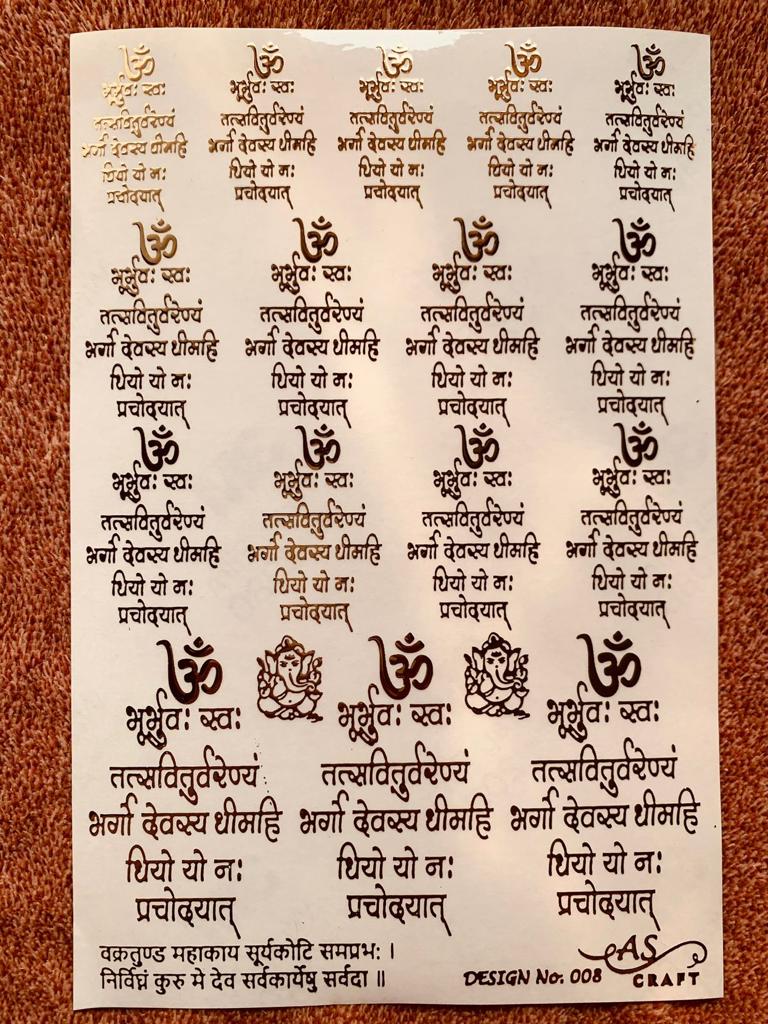 ॐ
भूर्भुवः स्वः
तत्सवितुर्वरेण्यं
भर्गो देवस्य धीमहि
धियो यो नः
प्रचोदयात्
ॐ
भूर्भुवः स्वः
तत्सवितुर्वरेण्यं
भर्गो देवस्य धीमहि
धियो यो नः
प्रचोदयात्
ॐ
भूर्भुवः स्वः
तत्सवितुर्वरेण्यं
भर्गो देवस्य धीमहि
धियो यो नः
प्रचोदयात्
ॐ
भूर्भुवः स्वः
तत्सवितुर्वरेण्यं
भर्गो देवस्य धीमहि
धियो यो नः
प्रचोदयात्
ॐ
भूर्भुवः स्वः
तत्सवितुर्वरेण्यं
भर्गो देवस्य धीमहि
धियो यो नः
प्रचोदयात्
ॐ
भूर्भुवः स्वः
तत्सवितुर्वरेण्यं
भर्गो देवस्य धीमहि
धियो यो नः
प्रचोदयात्
ॐ
भूर्भुवः स्वः
तत्सवितुर्वरेण्यं
भर्गो देवस्य धीमहि
धियो यो नः
प्रचोदयात्
ॐ
भूर्भुवः स्वः
तत्सवितुर्वरेण्यं
भर्गो देवस्य धीमहि
धियो यो नः
प्रचोदयात्
ॐ
भूर्भुवः स्वः
तत्सवितुर्वरेण्यं
भर्गो देवस्य धीमहि
धियो यो नः
प्रचोदयात्
ॐ
भूर्भुवः स्वः
तत्सवितुर्वरेण्यं
भर्गो देवस्य धीमहि
धियो यो नः
प्रचोदयात्
ॐ
भूर्भुवः स्वः
तत्सवितुर्वरेण्यं
भर्गो देवस्य धीमहि
धियो यो नः
प्रचोदयात्
ॐ
भूर्भुवः स्वः
तत्सवितुर्वरेण्यं
भर्गो देवस्य धीमहि
धियो यो नः
प्रचोदयात्
ॐ
भूर्भुवः स्वः
तत्सवितुर्वरेण्यं
भर्गो देवस्य धीमहि
धियो यो नः
प्रचोदयात्
ॐ
भूर्भुवः स्वः
तत्सवितुर्वरेण्यं
भर्गो देवस्य धीमहि
धियो यो नः
प्रचोदयात्
ॐ
भूर्भुवः स्वः
तत्सवितुर्वरेण्यं
भर्गो देवस्य धीमहि
धियो यो नः
प्रचोदयात्
ॐ
भूर्भुवः स्वः
तत्सवितुर्वरेण्यं
भर्गो देवस्य धीमहि
धियो यो नः
प्रचोदयात्
वक्रतुण्ड महाकाय सूर्यकोटि समप्रभः ।
निर्विघ्नं कुरु मे देव सर्वकार्येषु सर्वदा ॥
DESIGN No. 008
AS
CRAFT